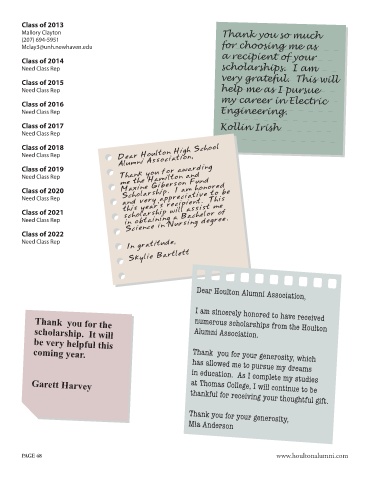 Class of 2013
Mallory Clayton
(207) 694-5951
Mclay3@unh.newhaven.edu
Class of 2014
Need Class Rep
Class of 2015
Need Class Rep
Class of 2016
Need Class Rep
Class of 2017
Need Class Rep
Class of 2018
Need Class Rep
Class of 2019
Need Class Rep
Class of 2020
Need Class Rep
Class of 2021
Need Class Rep
Class of 2022
Need Class Rep
Thank you so much
for choosing me as
a recipient of your
scholarships. I am
very grateful. This will
help me as I pursue
my career in Electric
Engineering.
Kollin Irish
Dear Houlton High School
Alumni Association,
Thank you for awarding
me the Hamilton and
Maxine Giberson Fund
Scholarship. I am honored
and very appreciative to be
this year's recipient. This
scholarship will assist me
in obtaining a Bachelor of
Science in Nursing degree.
In gratitude,
Skylie Bartlett
Dear Houlton Alumni Association,
I am sincerely honored to have received
numerous scholarships from the Houlton
Alumni Association.
Thank you for your generosity, which
has allowed me to pursue my dreams
in education. As I complete my studies
at Thomas College, I will continue to be
thankful for receiving your thoughtful gift.
Thank you for your generosity,
Mia Anderson
Thank you for the
scholarship. It will
be very helpful this
coming year.
Garett Harvey
PAGE 48
www.houltonalumni.com